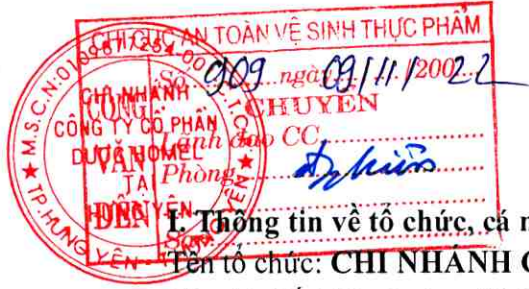 CHI CỤC AN TOÀN VỆ SINH THỰC PHẨM
CÔNG
VĂN
ĐẾN
Số 909 ngày 09/11/2002 2
CHUYỂN
Lãnh đạo CC
Phòng
M.S.C.N:
CHI NHÁNH
CÔNG TY CỔ PHẦN
TẠI
HƯNG YÊN
TP.HƯNG YÊN
I. Thông tin về tổ chức, cá n
Tên tổ chức: CHI NHÁNH C